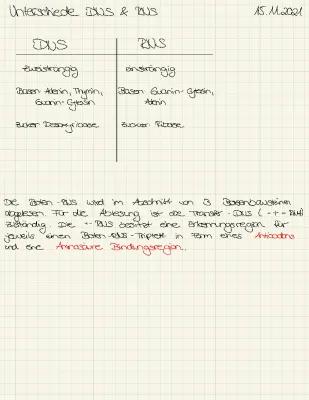 Unterschiede DNS & RNS 15.11.2021
DNS RNS
zweisträngig einsträngig
Basen: Adenin, Thymin, Basen: Guanin-Cytosin,
Guanin-Cytosin
Zucker: Desoxyribose Zucker: Ribose
Die Boten-RNS wird im Abschnitt von 3 Basenbausteinen
abgelesen. Für die Ablesung ist die Transfer-DNS (
zuständig. Die t-RNS besitzt eine Erkennungsregion für
jeweils einen Boten-RNS-Triplett in Form eines Anticodons
und eine Aminosäure Bindungsregion.